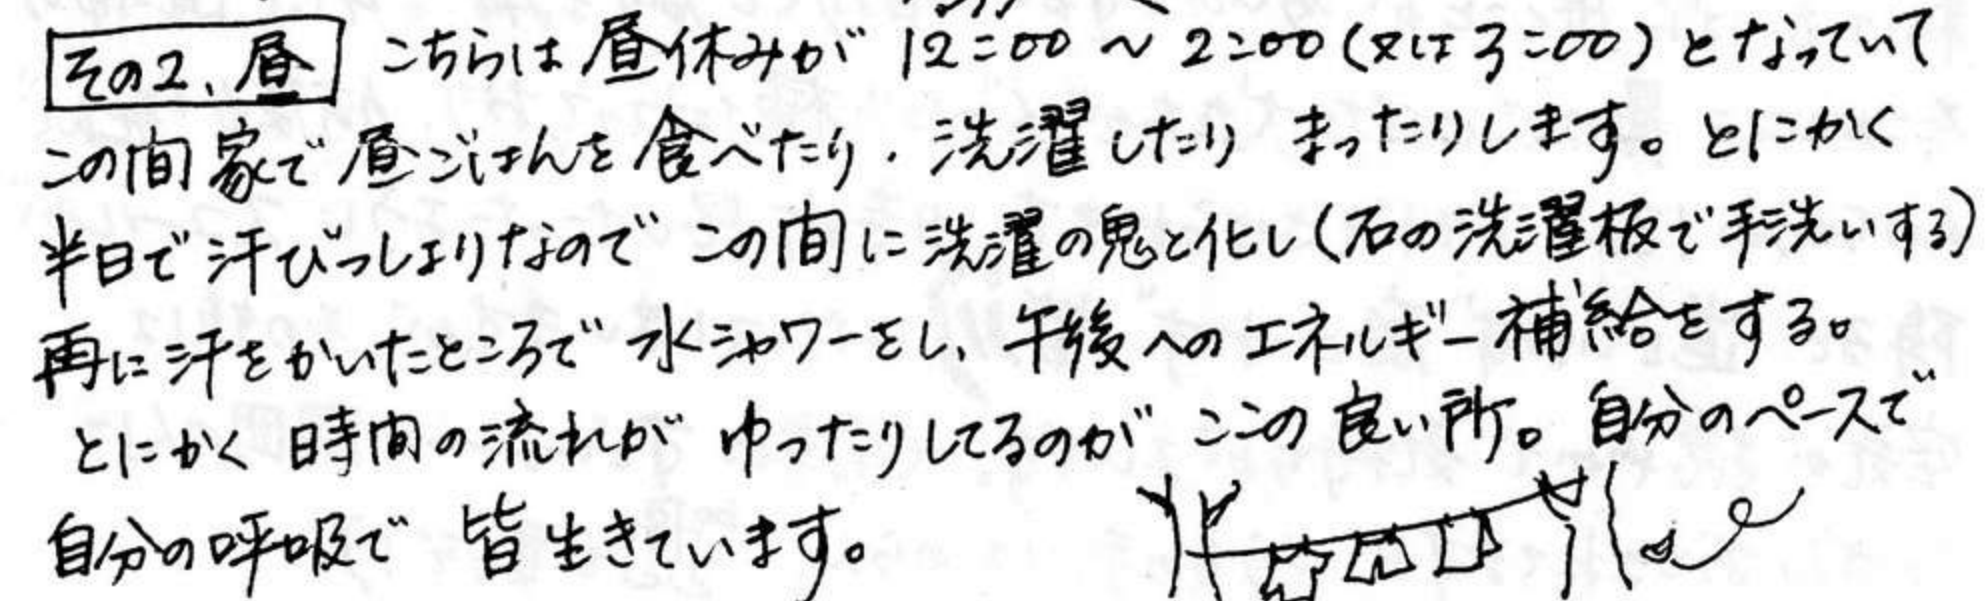 その2、昼 こちらは昼休みが 12:00 ～ 2:00 (又は 3:00) となっていて
この間 家で 昼ごはんを 食べたり、洗濯したり まったりします。とにかく
半日で 汗びっしょりなので この間に 洗濯の鬼と化し (石の洗濯板で手洗いする)
再に汗をかいたところで 水シャワーをし、午後へのエネルギー補給をする。
とにかく 時間の流れが ゆったりしてるのが ここの良い所。自分のペースで
自分の呼吸で 皆生きています。